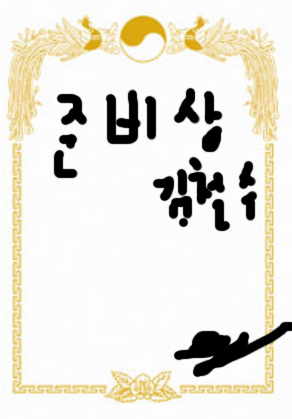 준비상
김철수